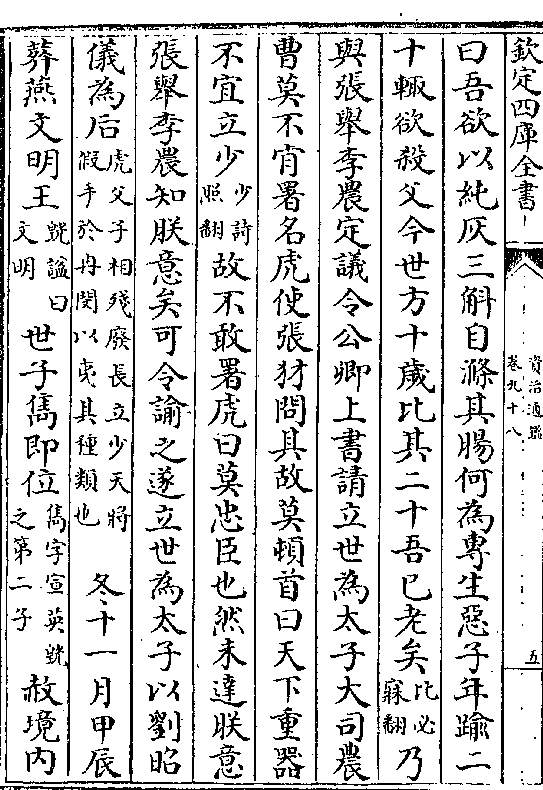 欽定四庫全書
資治通鑑
卷九十八
五
曰吾欲以純灰三斛自滌其腸何為專生惡子年踰二
十輒欲殺父今世方十歲比其二十吾已老矣比必寐翻乃
與張舉李農定議令公卿上書請立世為太子大司農
曹莫不肯署名虎使張豺問其故莫頓首曰天下重器
不宜立少少詩照翻故不敢署虎曰莫忠臣也然未達朕意
張舉李農知朕意矣可令諭之遂立世為太子以劉昭
儀為后虎父子相殘廢長立少天將假手於冉閔以夷其種類也冬十一月甲辰
葬燕文明王皝諡曰文明世子雋即位雋字宣英皝之第二子赦境內